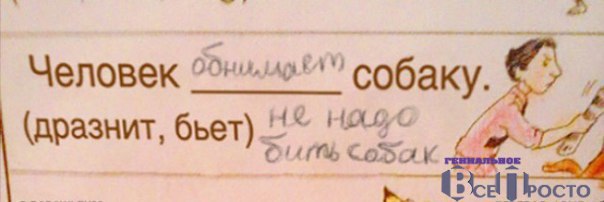 Человек обнимает собаку.
(дразнит, бьет) не надо
бить собак
ГЕНИАЛЬНОЕ
ВСЕ ПРОСТО